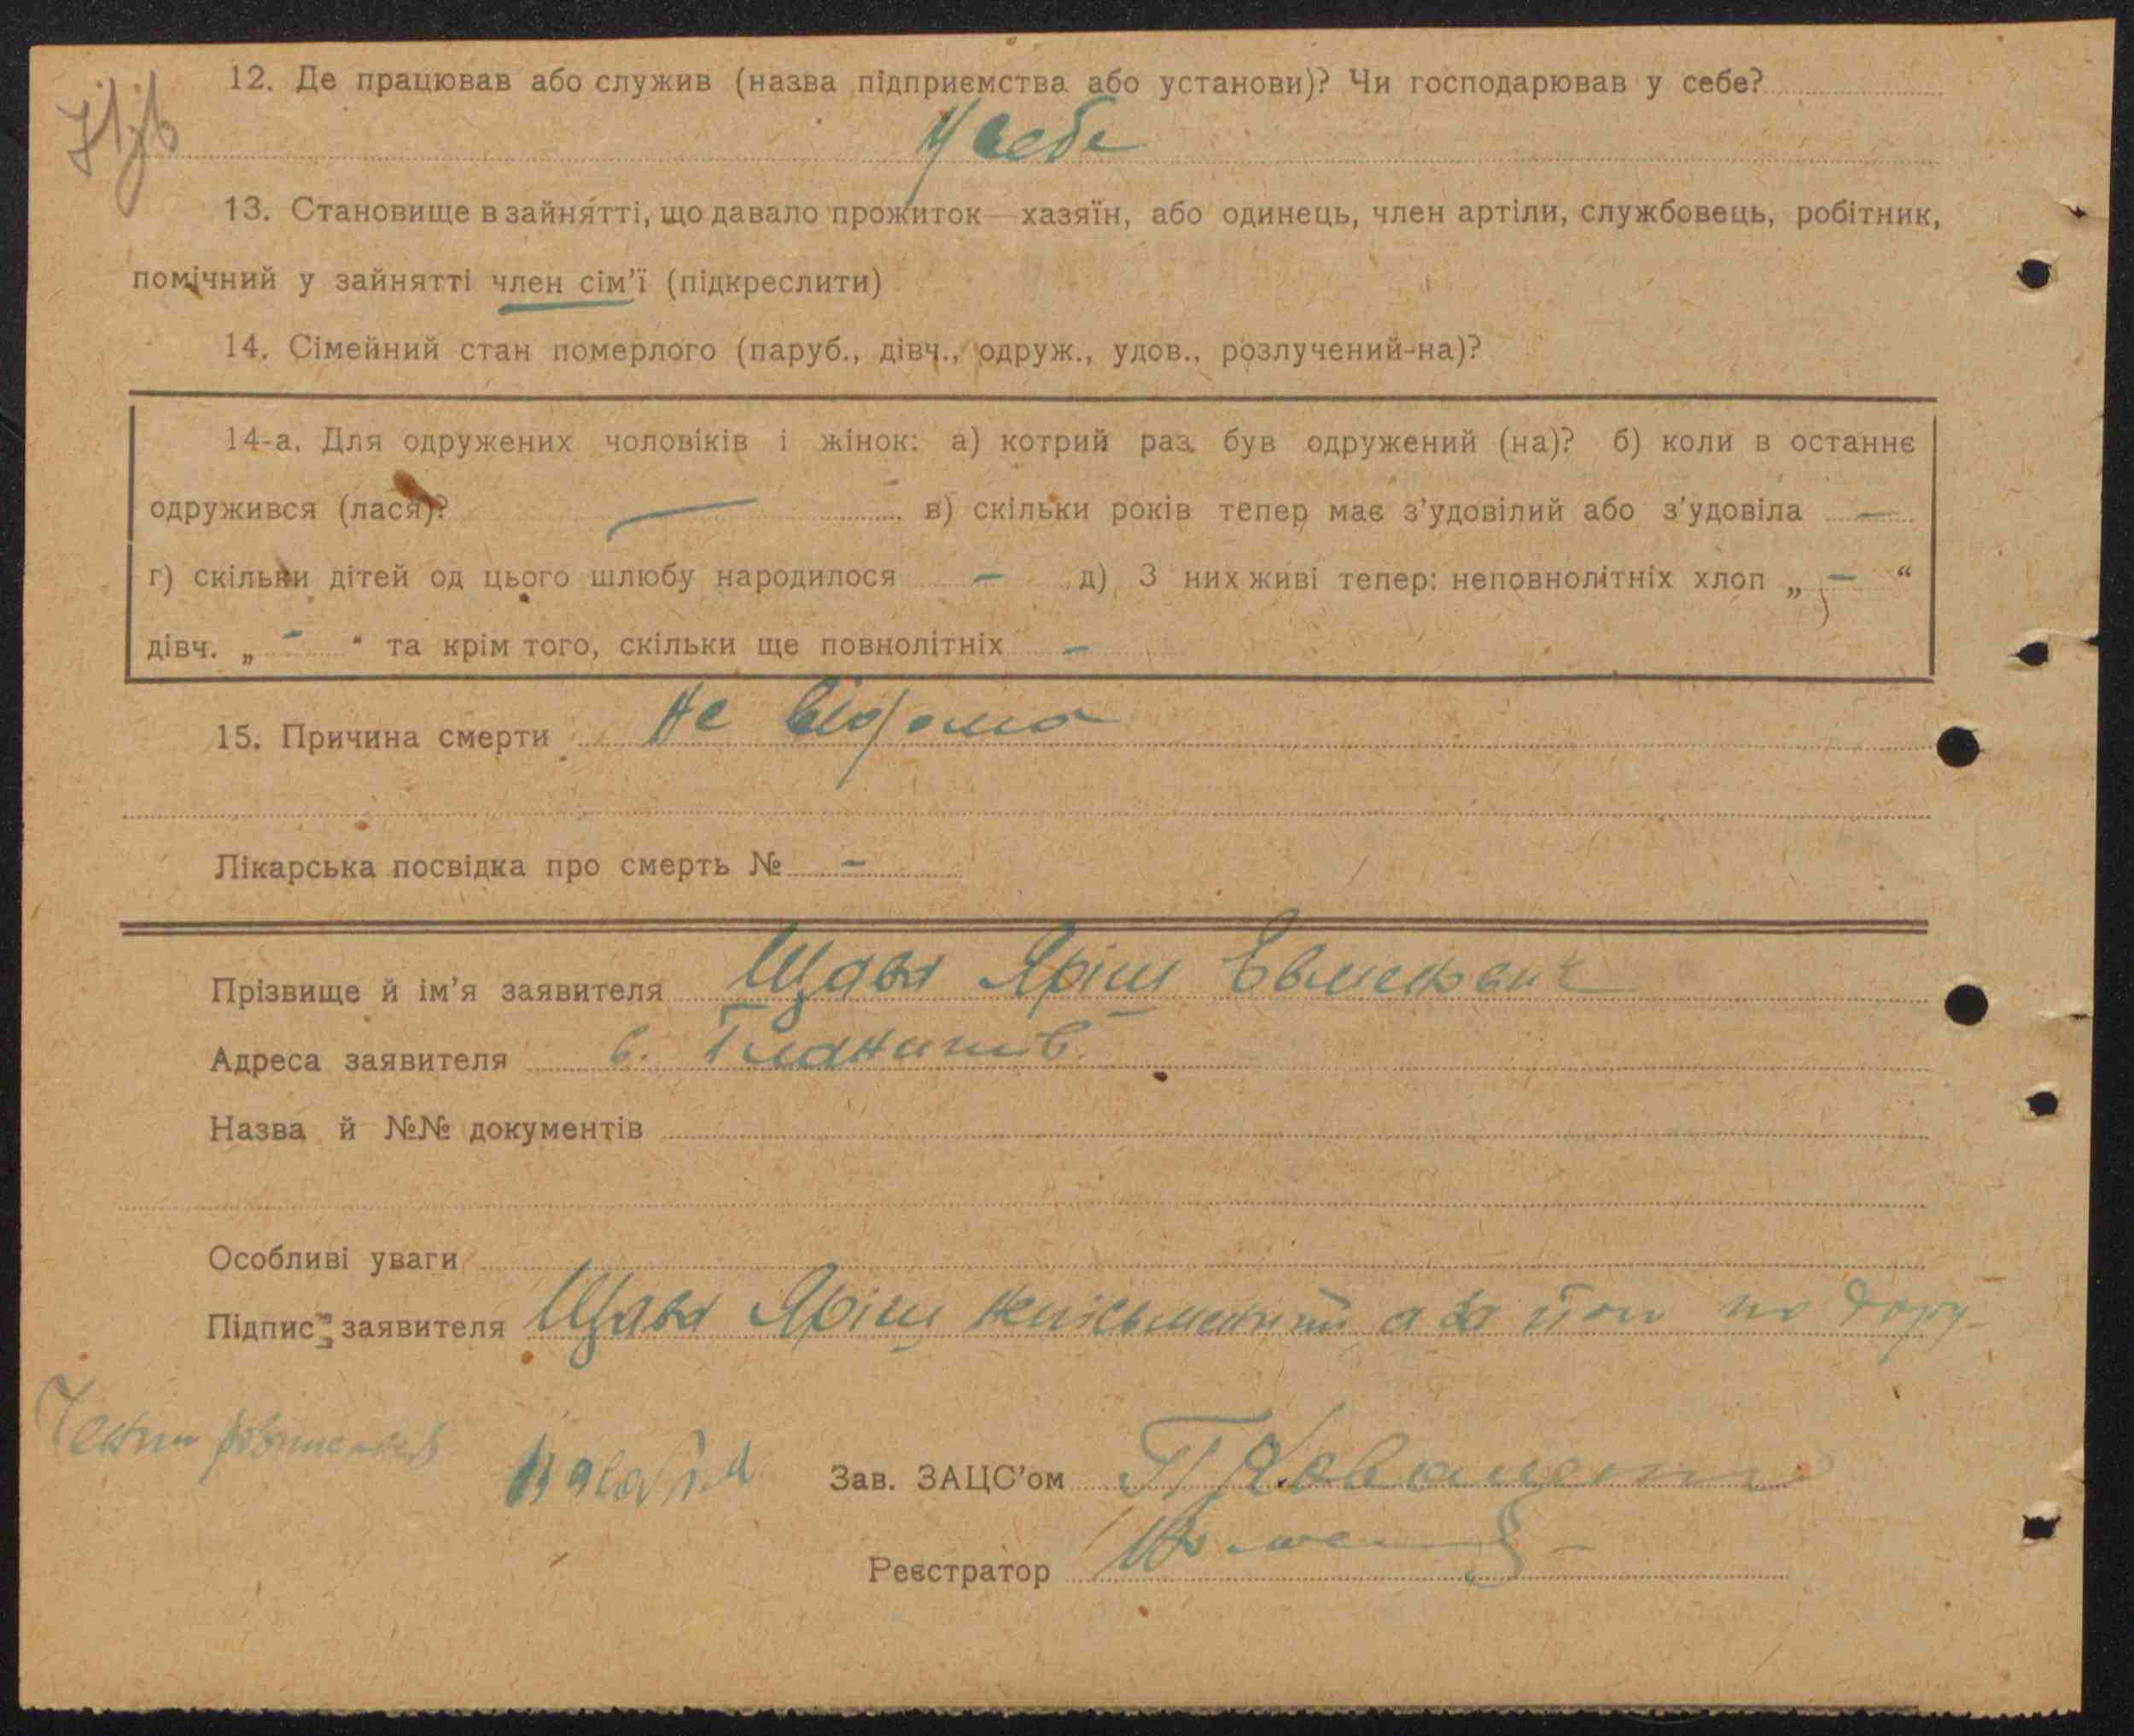 12. Де працював або служив (назва підприємства або установи)? Чи господарював у себе?
У себе
13. Становище в зайнятті, що давало прожиток — хазяїн, або одинець, член артіли, службовець, робітник,
помічний у зайнятті член сім'ї (підкреслити)
14. Сімейний стан померлого (паруб., дівч., одруж., удов., розлучений-на)?
14-а. Для одружених чоловіків і жінок: а) котрий раз був одружений (на)? б) коли в останнє
одружився (лася)? — в) скільки років тепер має з'удовілий або з'удовіла —
г) скільки дітей од цього шлюбу народилося — д) З них живі тепер: неповнолітніх хлоп „ — “
дівч. „ — “ та крім того, скільки ще повнолітніх —
15. Причина смерти Не відома
Лікарська посвідка про смерть № —
Прізвище й ім'я заявителя
Адреса заявителя с.
Назва й №№ документів
Особливі уваги
Підпис заявителя неписьменний а за його по дору-
Зав. ЗАЦС'ом
Реєстратор